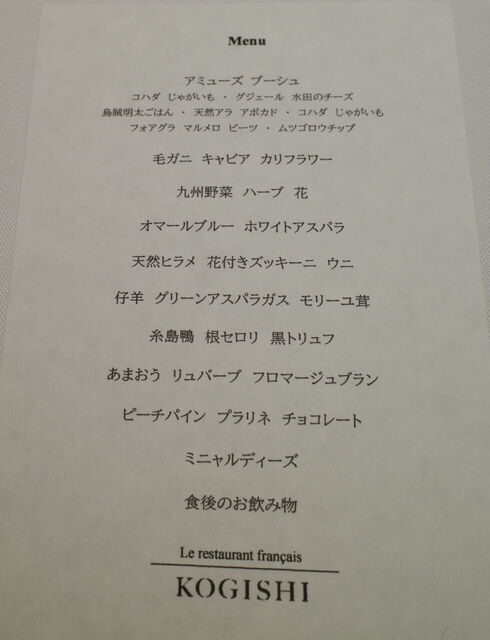 Menu
アミューズ ブーシュ
コハダ じゃがいも ・ グジェール 水田のチーズ
烏賊明太ごはん ・ 天然アラ アボカド ・ コハダ じゃがいも
フォアグラ マルメロ ビーツ ・ ムツゴロウチップ
毛ガニ キャビア カリフラワー
九州野菜 ハーブ 花
オマールブルー ホワイトアスパラ
天然ヒラメ 花付きズッキーニ ウニ
仔羊 グリーンアスパラガス モリーユ茸
糸島鴨 根セロリ 黒トリュフ
あまおう リュバーブ フロマージュブラン
ピーチパイン プラリネ チョコレート
ミニャルディーズ
食後のお飲み物
Le restaurant français
KOGISHI